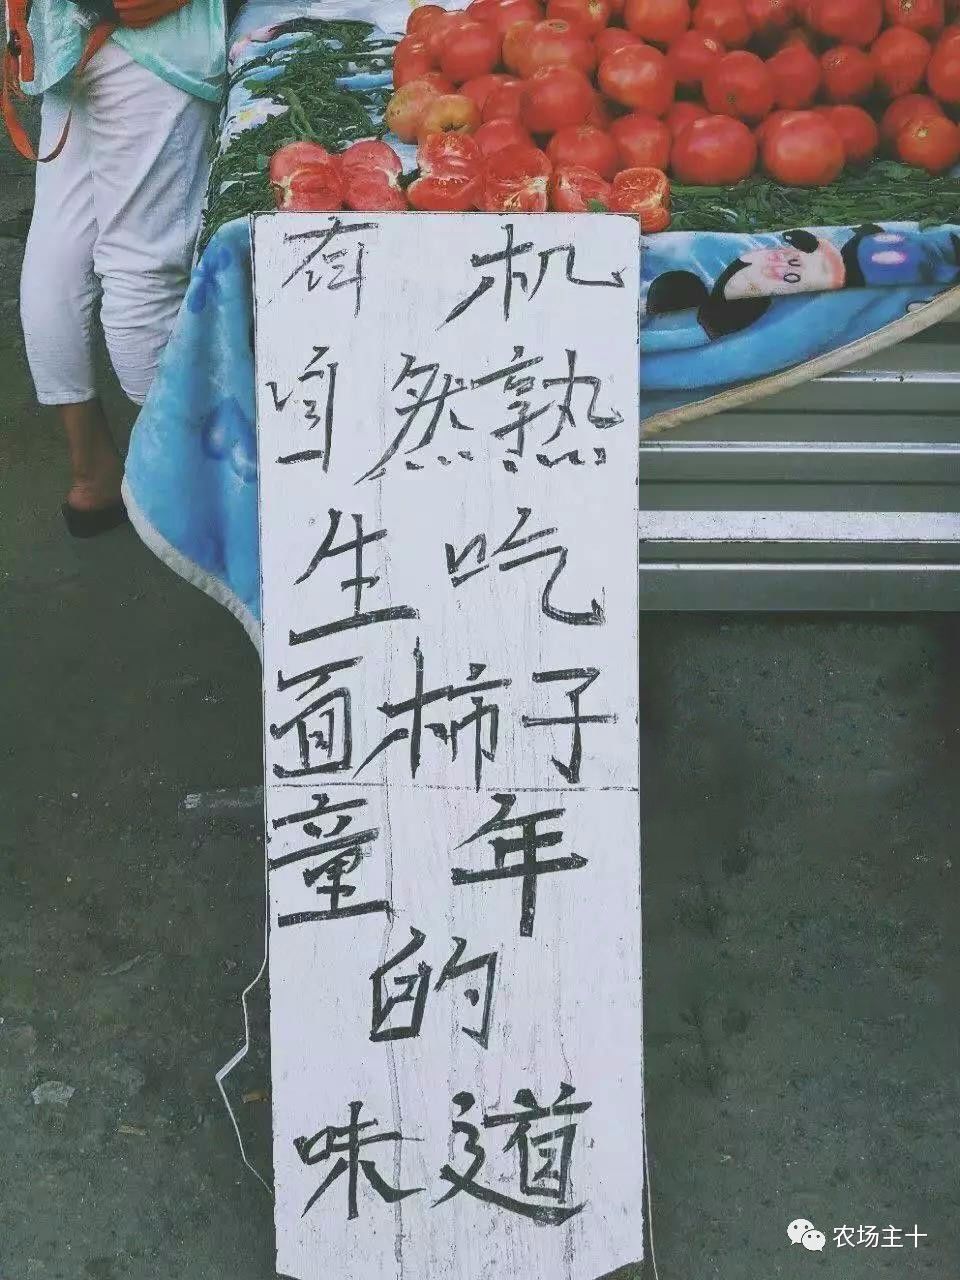 有机
自然熟
生吃
面柿子
童年
的
味道
农场主十